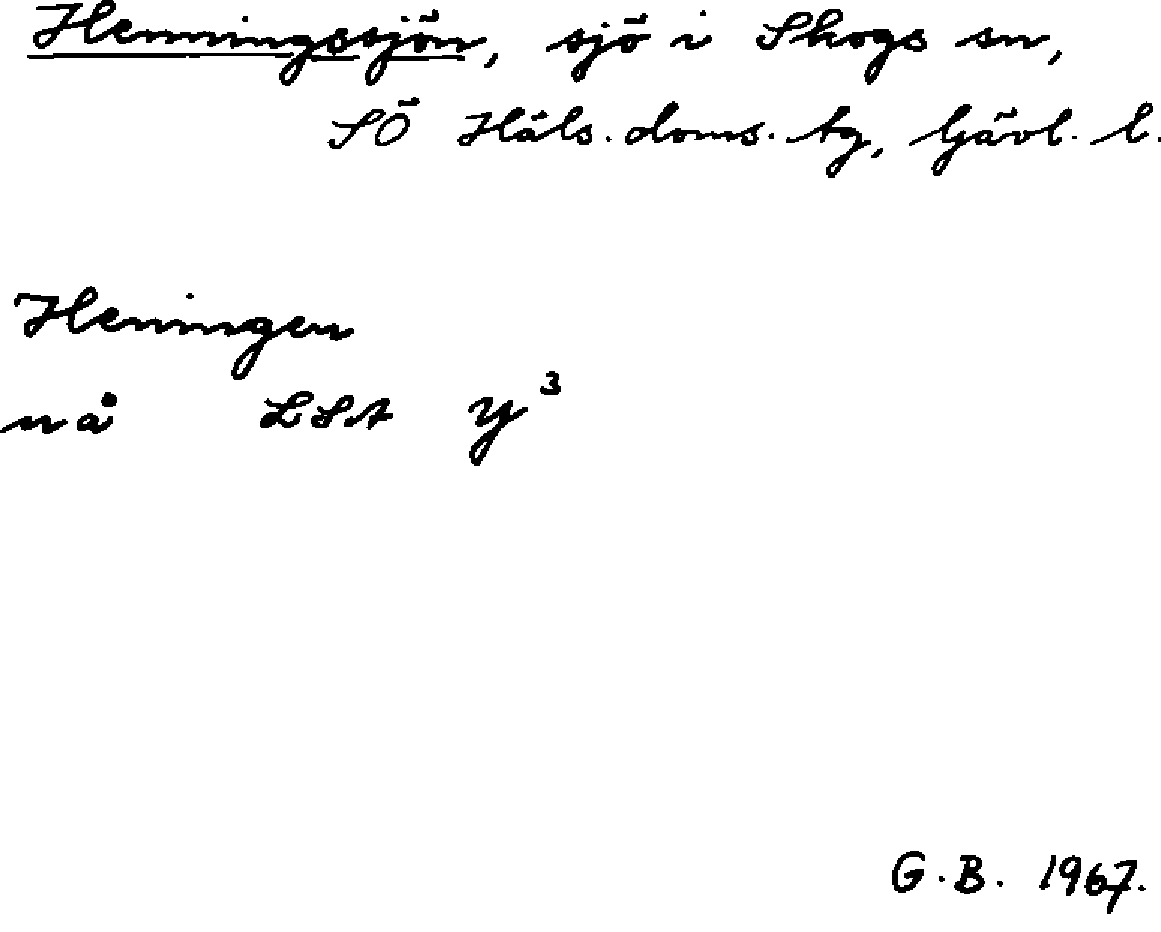 Henningssjön, sjö i Skogs sn,
SÖ Häls. doms. tg, Gävl. l.
Heningen
nå LSA y³
G.B. 1967.